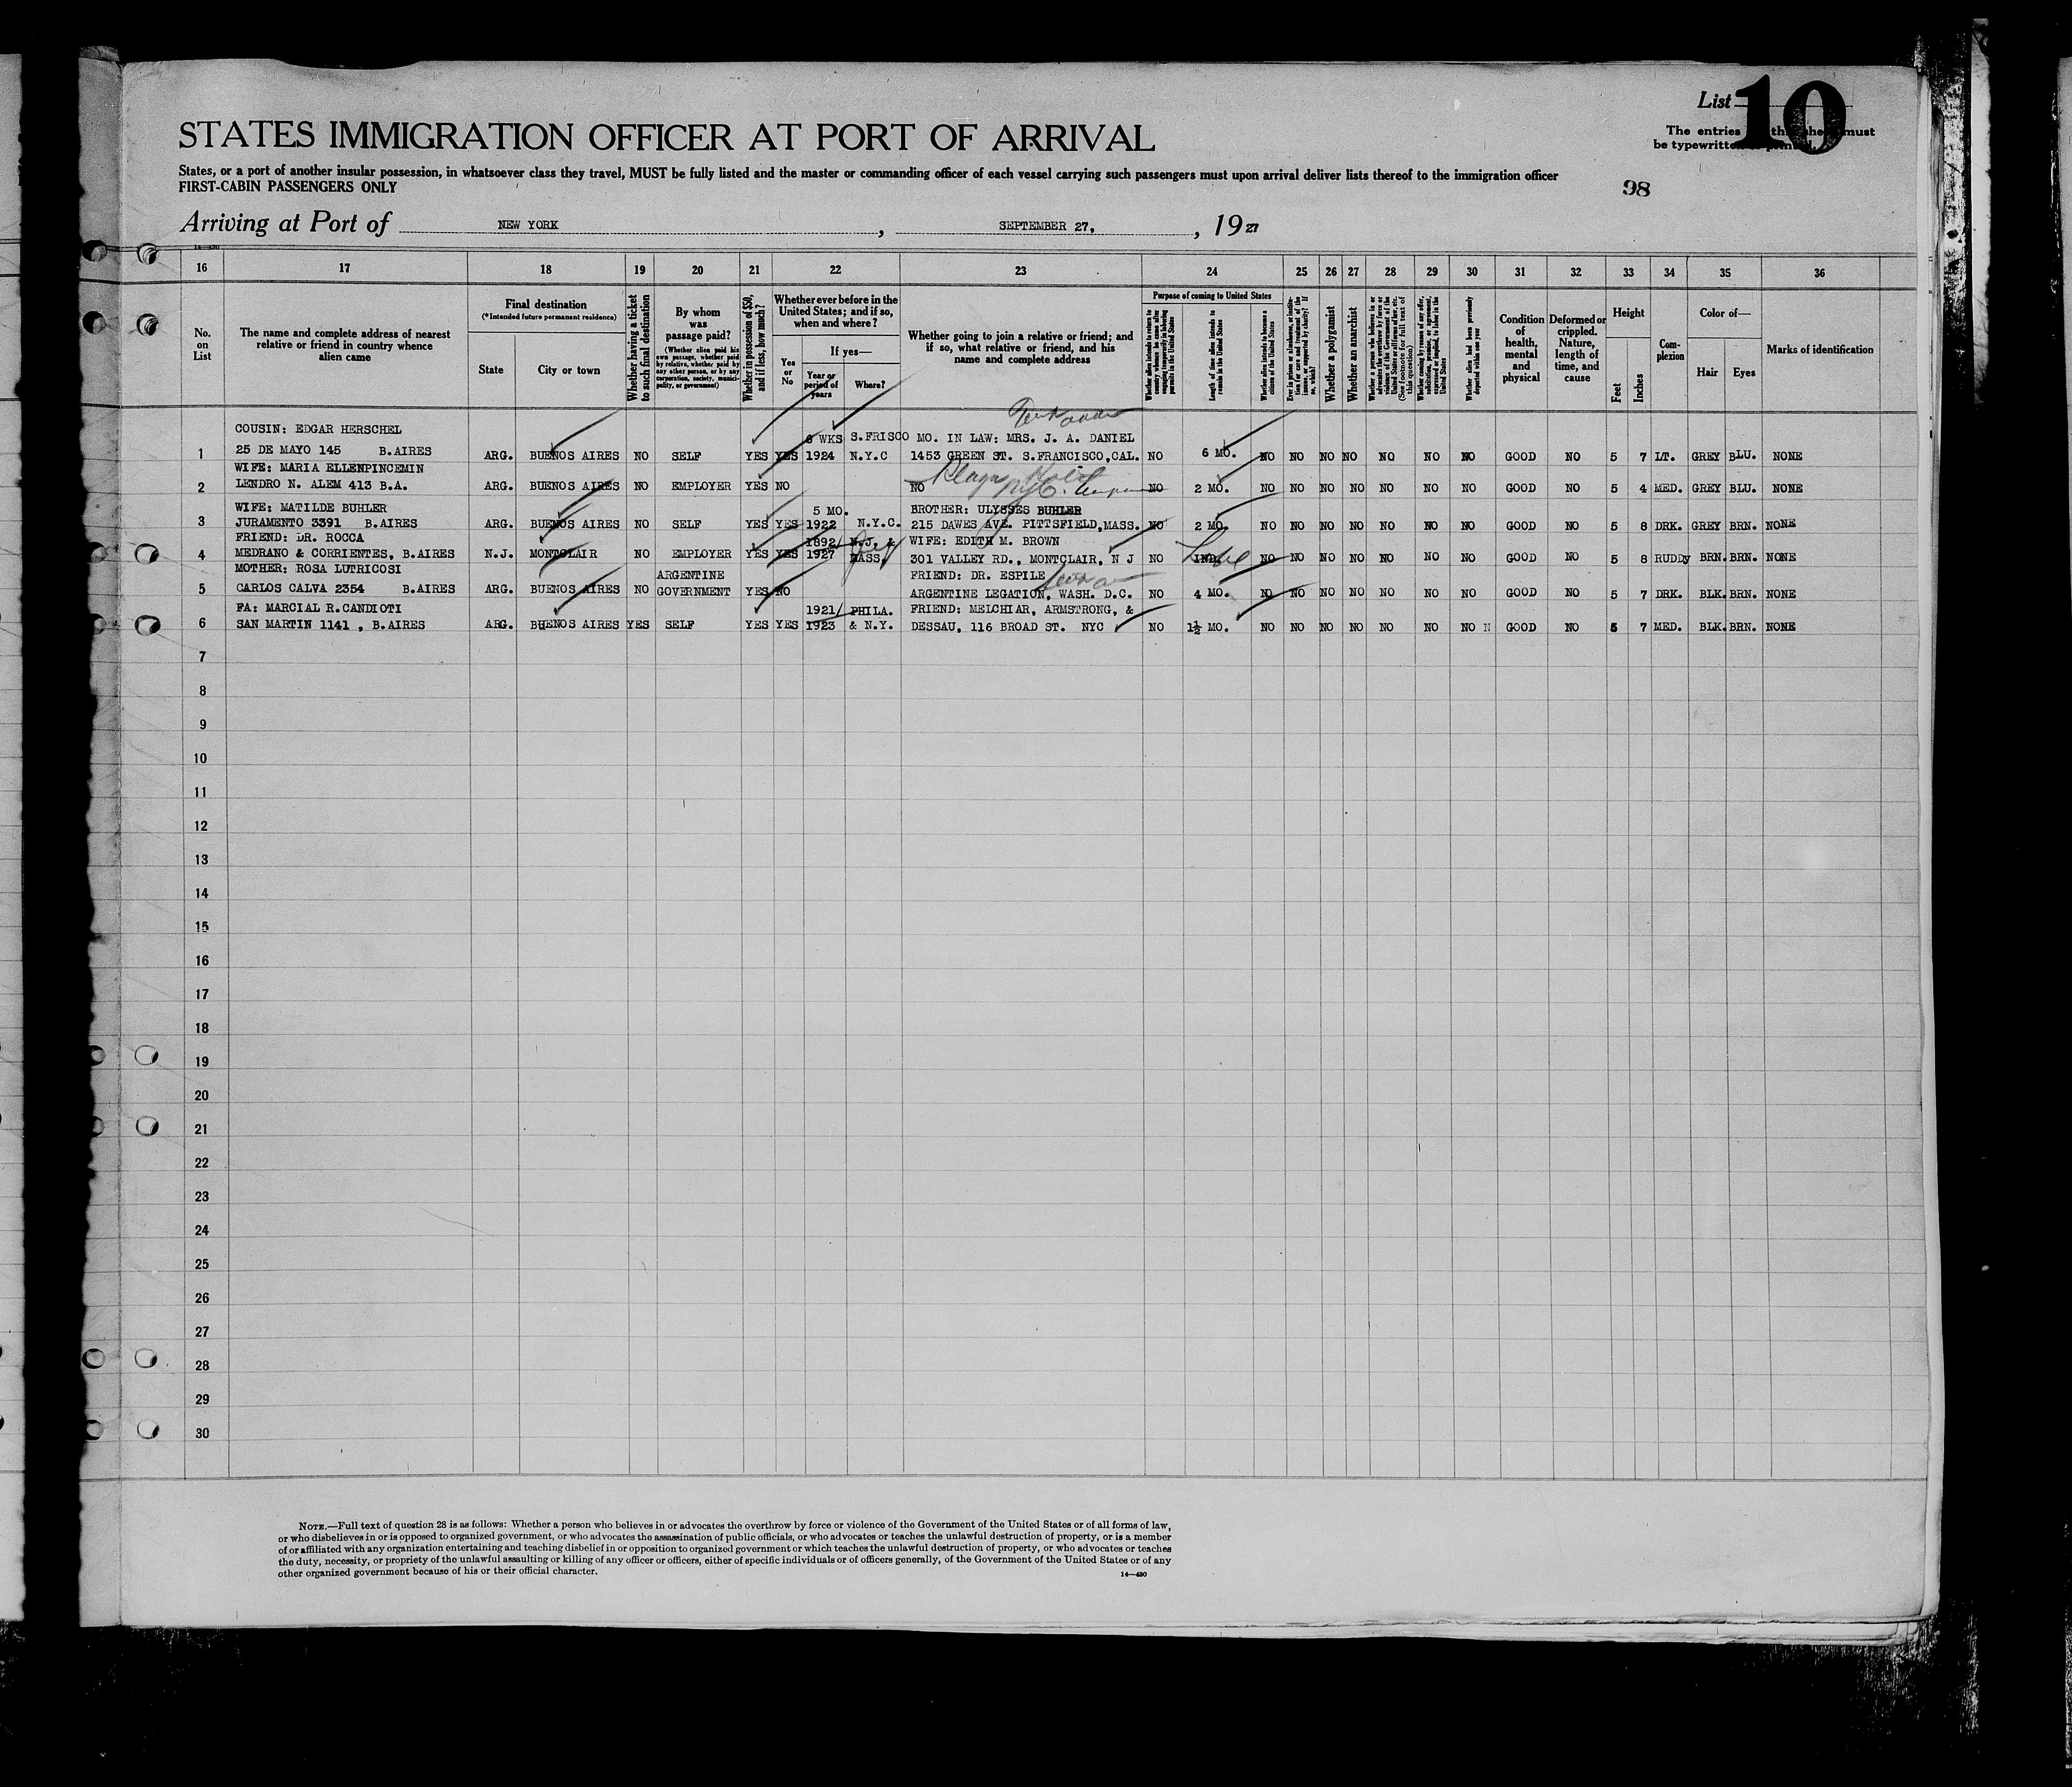 List 10
STATES IMMIGRATION OFFICER AT PORT OF ARRIVAL
The entries must
be typewritten
States, or a port of another insular possession, in whatsoever class they travel, MUST be fully listed and the master or commanding officer of each vessel carrying such passengers must upon arrival deliver lists thereof to the immigration officer
FIRST-CABIN PASSENGERS ONLY
98
Arriving at Port of NEW YORK, SEPTEMBER 27, 1927
14—430
16 17 18 19 20 21 22 23 24 25 26 27 28 29 30 31 32 33 34 35 36
No. on List
The name and complete address of nearest relative or friend in country whence alien came
Final destination
(*Intended future permanent residence)
State
City or town
Whether having a ticket to such final destination
By whom was passage paid?
(Whether alien paid his own passage, whether paid by relative, whether paid by any other person, or by any corporation, society, municipality, or government)
Whether in possession of $50, and if less, how much?
Whether ever before in the United States; and if so, when and where?
Yes or No
If yes—
Year or period of years
Where?
Whether going to join a relative or friend; and if so, what relative or friend, and his name and complete address
Purpose of coming to United States
Length of time alien intends to remain in the United States
Whether alien intends to become a citizen of the United States
Whether a polygamist
Whether an anarchist
Whether alien had been previously deported within one year
Condition of health, mental and physical
Deformed or crippled. Nature, length of time, and cause
Height
Feet
Inches
Complexion
Color of—
Hair
Eyes
Marks of identification
COUSIN: EDGAR HERSCHEL 6 WKS S.FRISCO MO. IN LAW: MRS. J. A. DANIEL
1 25 DE MAYO 145 B.AIRES ARG. BUENOS AIRES NO SELF YES YES 1924 N.Y.C 1453 GREEN ST. S.FRANCISCO,CAL. NO 6 MO. NO NO NO NO NO NO NO GOOD NO 5 7 LT. GREY BLU. NONE
WIFE: MARIA ELLENPINCEMIN
2 LENDRO N. ALEM 413 B.A. ARG. BUENOS AIRES NO EMPLOYER YES NO NO NO 2 MO. NO NO NO NO NO NO NO GOOD NO 5 4 MED. GREY BLU. NONE
WIFE: MATILDE BUHLER 5 MO. BROTHER: ULYSSES BUHLER
3 JURAMENTO 3391 B.AIRES ARG. BUENOS AIRES NO SELF YES YES 1922 N.Y.C. 215 DAWES AVE. PITTSFIELD,MASS. NO 2 MO. NO NO NO NO NO NO NO GOOD NO 5 8 DRK. GREY BRN. NONE
FRIEND: DR. ROCCA 1892/ N.J. & WIFE: EDITH M. BROWN
4 MEDRANO & CORRIENTES, B.AIRES N.J. MONTCLAIR NO EMPLOYER YES YES 1927 MASS. 301 VALLEY RD., MONTCLAIR, N J NO NO NO NO NO NO NO NO GOOD NO 5 8 RUDDY BRN. BRN. NONE
MOTHER: ROSA LUTRICOSI ARGENTINE FRIEND: DR. ESPILE
5 CARLOS CALVA 2354 B.AIRES ARG. BUENOS AIRES NO GOVERNMENT YES NO ARGENTINE LEGATION, WASH. D.C. NO 4 MO. NO NO NO NO NO NO NO GOOD NO 5 7 DRK. BLK. BRN. NONE
FA: MARCIAL R.CANDIOTI 1921/ PHILA. FRIEND: MELCHIAR, ARMSTRONG, &
6 SAN MARTIN 1141 , B.AIRES ARG. BUENOS AIRES YES SELF YES YES 1923 & N.Y. DESSAU, 116 BROAD ST. NYC NO 1½ MO. NO NO NO NO NO NO NO N GOOD NO 5 7 MED. BLK. BRN. NONE
7
8
9
10
11
12
13
14
15
16
17
18
19
20
21
22
23
24
25
26
27
28
29
30
NOTE.—Full text of question 28 is as follows: Whether a person who believes in or advocates the overthrow by force or violence of the Government of the United States or of all forms of law,
or who disbelieves in or is opposed to organized government, or who advocates the assassination of public officials, or who advocates or teaches the unlawful destruction of property, or is a member
of or affiliated with any organization entertaining and teaching disbelief in or opposition to organized government or which teaches the unlawful destruction of property, or who advocates or teaches
the duty, necessity, or propriety of the unlawful assaulting or killing of any officer or officers, either of specific individuals or of officers generally, of the Government of the United States or of any
other organized government because of his or their official character.
14—430